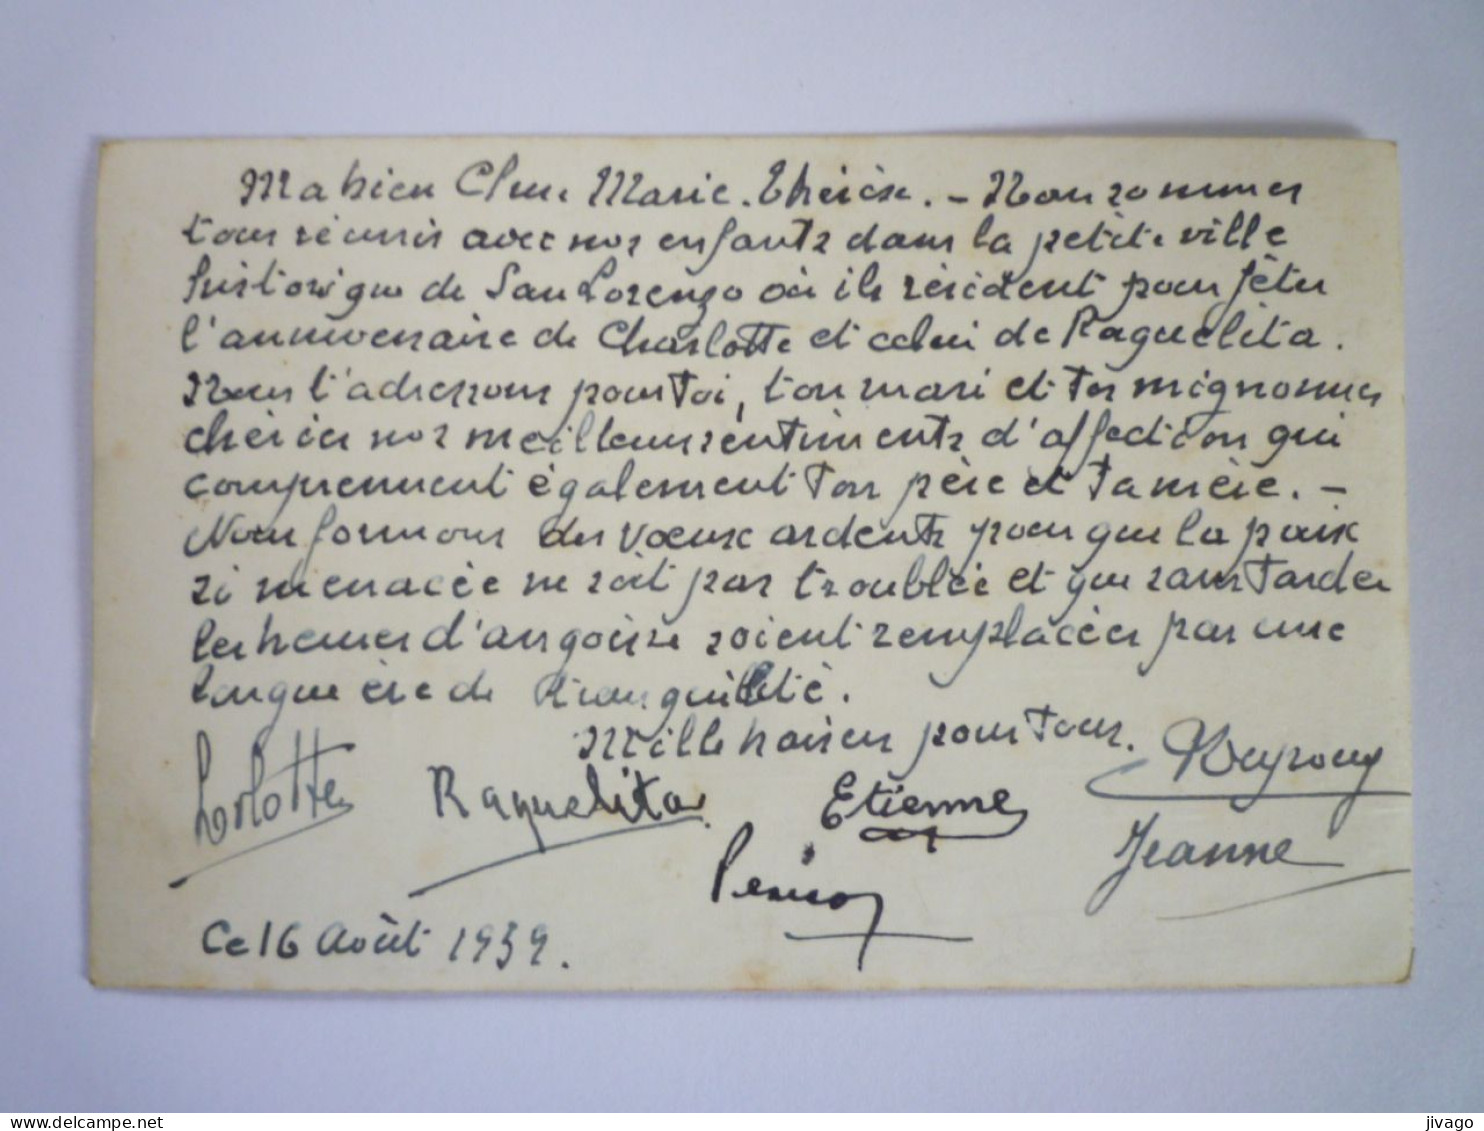 Ma bien Chère Marie-Thérèse. — Nous sommes
tous réunis avec nos enfants dans la petite ville
historique de San Lorenzo où ils résident pour fêter
l'anniversaire de Charlotte et celui de Raquelita.
Nous t'adressons pour toi, ton mari et tes mignonnes
chéries nos meilleurs sentiments d'affection qui
comprennent également ton père et ta mère. —
Nous formons des vœux ardents pour que la paix
si menacée ne soit pas troublée et que sans tarder
les heures d'angoisse soient remplacées par une
longue ère de tranquillité.
Mille baisers pour tous.
Lolotte Raquelita Etienne
Jeanne
Ce 16 Août 1939.
www.delcampe.net
jivago